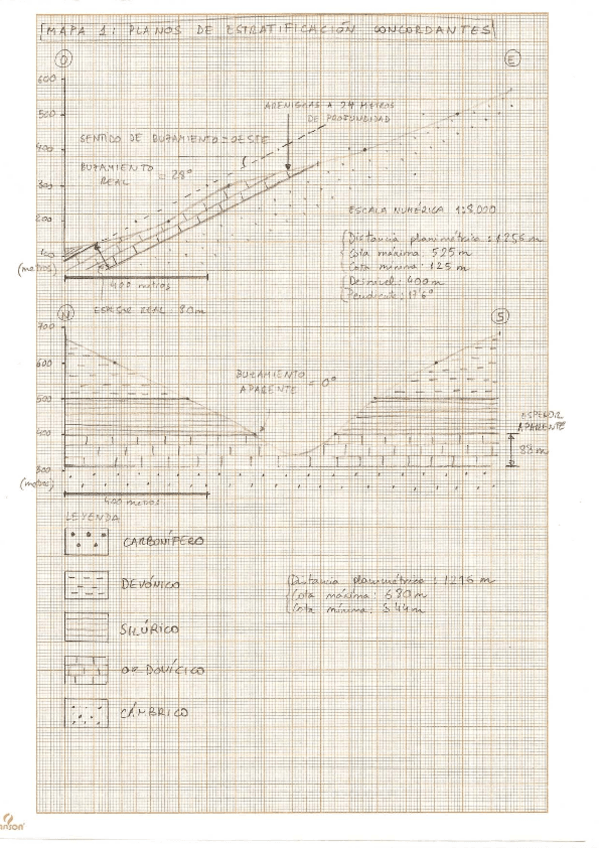 MAPA 1: PLANOS DE ESTRATIFICACIÓN CONCORDANTES
O
E
600
500
400
300
200
100
(metros)
ARENISCAS A 24 METROS
DE PROFUNDIDAD
SENTIDO DE BUZAMIENTO = OESTE
BUZAMIENTO
REAL = 28°
ESCALA NUMÉRICA 1:8.000
Distancia planimétrica: 1256 m
Cota máxima: 525 m
Cota mínima: 125 m
Desnivel: 400 m
Pendiente: 17'6°
400 metros
ESPESOR REAL: 80 m
N
S
700
600
500
400
300
(metros)
BUZAMIENTO
APARENTE = 0°
ESPESOR
APARENTE
88 m
400 metros
LEYENDA
CARBONÍFERO
DEVÓNICO
SILÚRICO
ORDOVÍCICO
CÁMBRICO
Distancia planimétrica: 1216 m
Cota máxima: 680 m
Cota mínima: 344 m